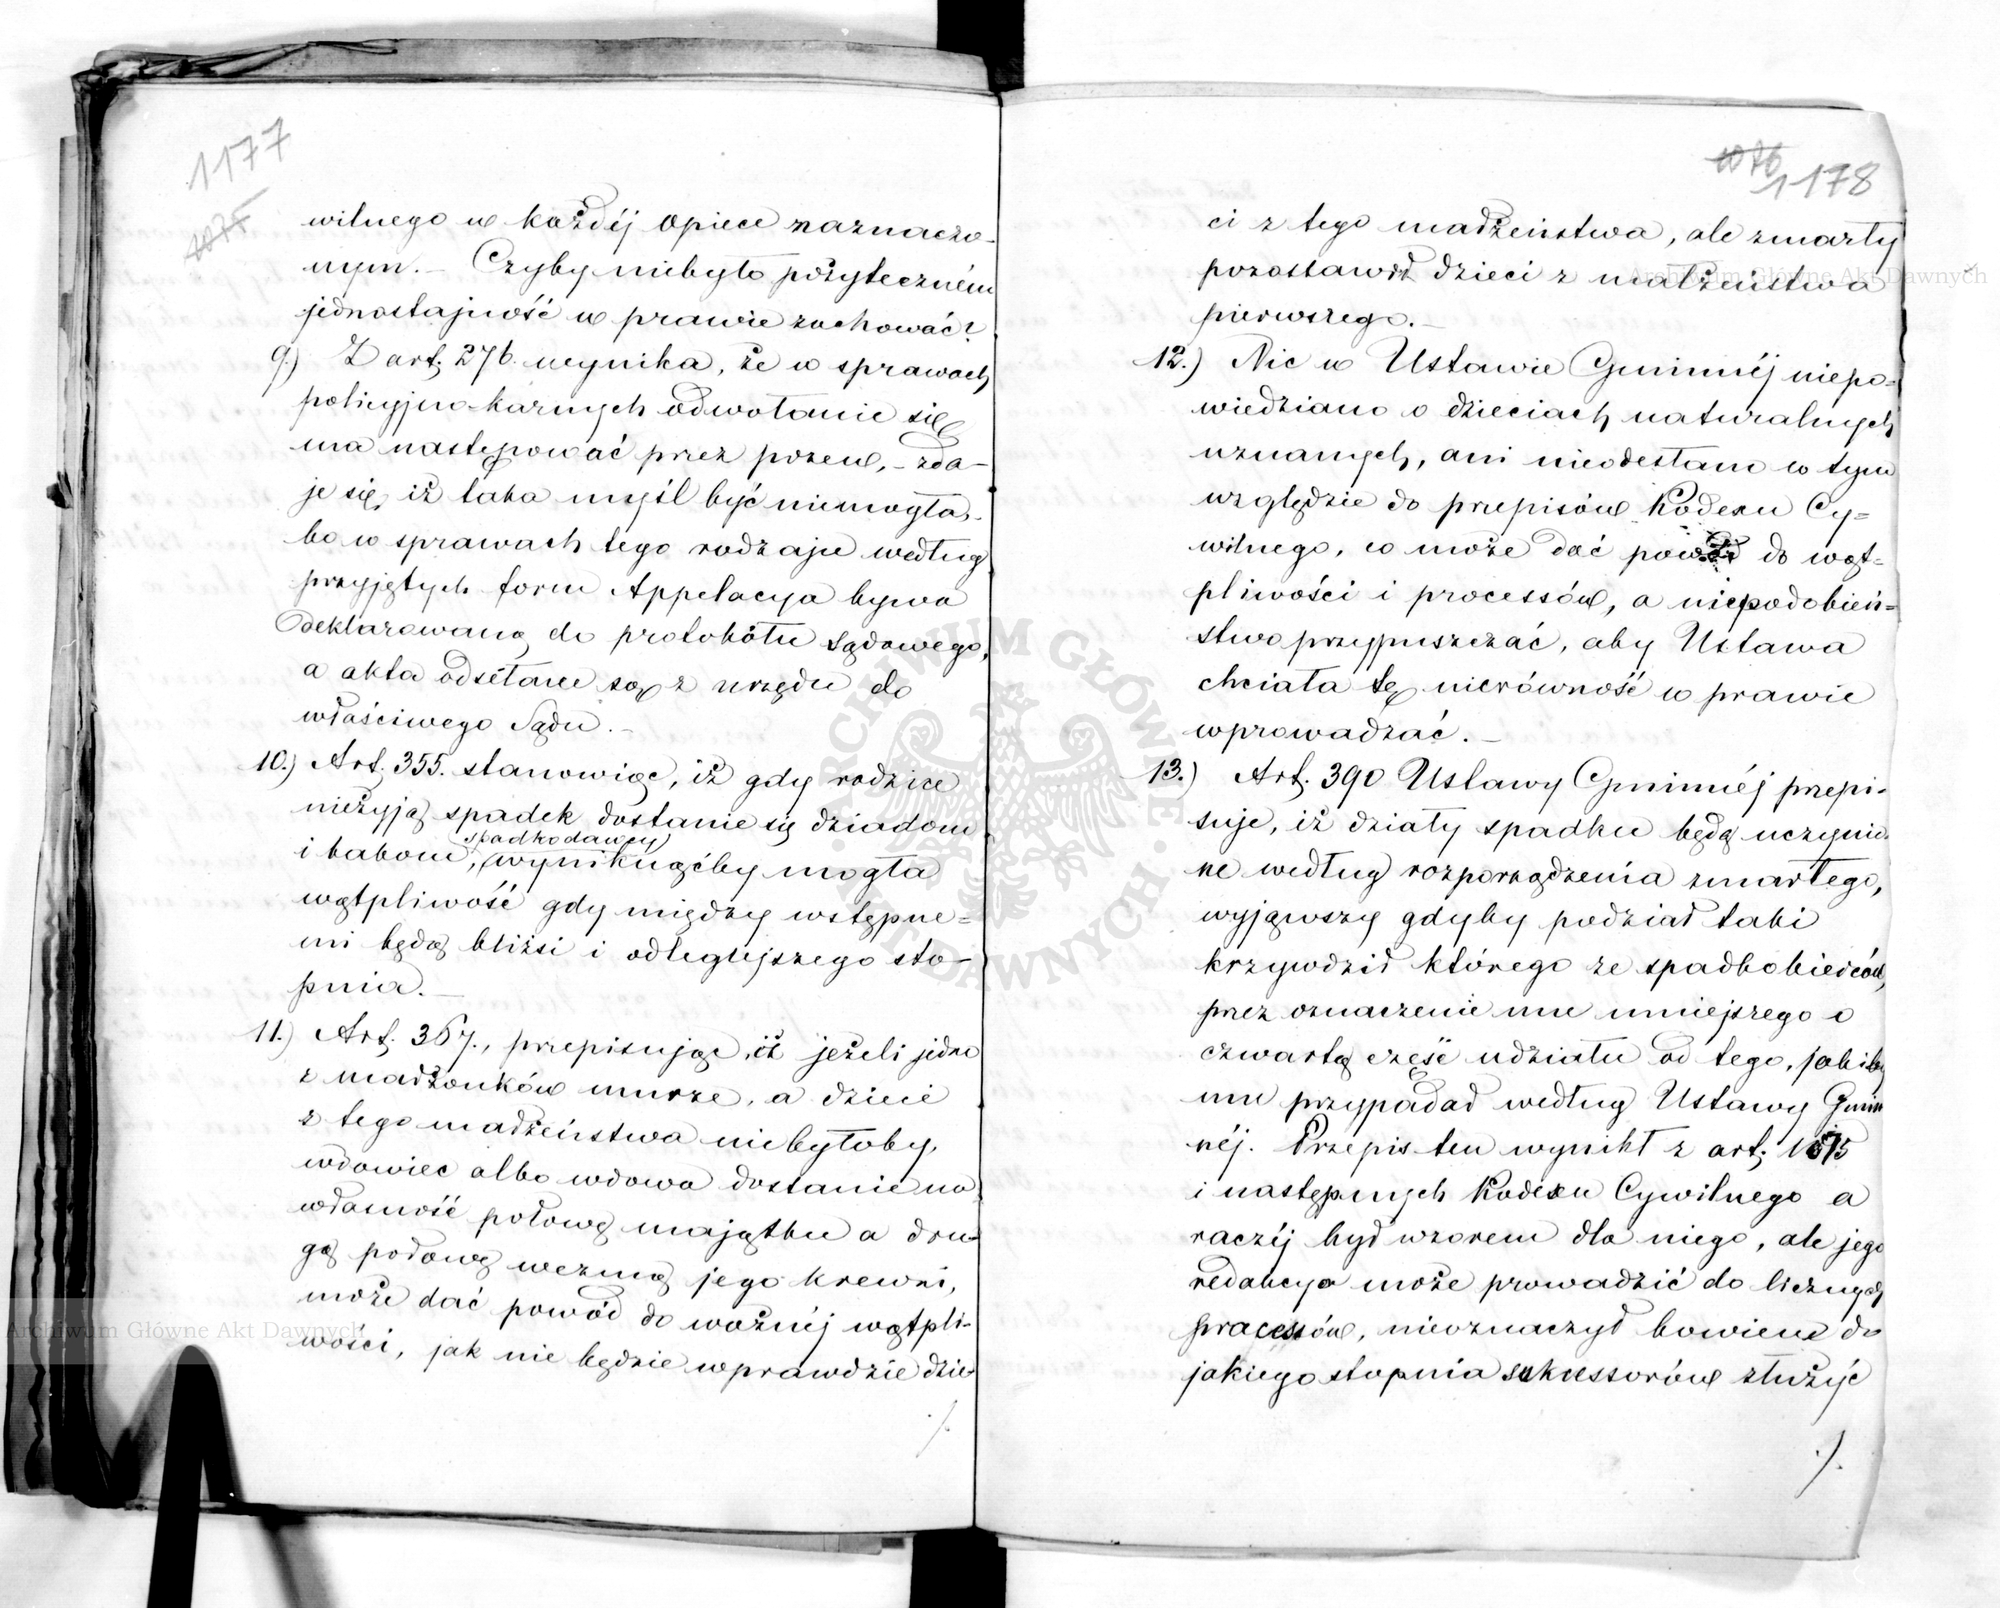 1177
1075
wilnego w każdéj opiece naznaczo-
nym. – Czyby niebyło pożyteczném
jednostajność w prawie zachować?
9.) Z art. 276. wynika, że w sprawach
policyjno-karnych odwołanie się
ma następować przez pozew, – zda-
je się, iż taka myśl być niemogła,
bo w sprawach tego rodzaju według
przyjętych form Appelacya bywa
deklarowaną do protokółu Sądowego,
a akta odsełane są z urzędu do
właściwego Sądu. –
10.) Art. 355. stanowiąc, iż gdy rodzice
nieżyją spadek dostanie się dziadom
i babom, spadkodawcy wyniknąćby mogła
wątpliwość gdy między wstępne-
mi będą bliżsi i odleglejszego sto-
pnia. –
11.) Art. 367., przepisując, iż jeżeli jedno
z małżonków umrze, a dzieci
z tego małżeństwa niebyłoby,
wdowiec albo wdowa dostanie na
własność połowę majątku a dru-
gą połowę wezmą jego krewni,
może dać powód do ważnéj wątpli-
wości, jak nie będzie wprawdzie dzie-
./.
1076
1178
ci z tego małżeństwa, ale zmarły
pozostawił dzieci z małżeństwa
pierwszego. –
12.) Nic w Ustawie Gminnéj niepo-
wiedziano o dzieciach naturalnych
uznanych, ani nieodesłano w tym
względzie do przepisów Kodexu Cy-
wilnego, co może dać powód do wąt-
pliwości i processów, a niepodobień-
stwo przypuszczać, aby Ustawa
chciała tę nierówność w prawie
wprowadzać. –
13.) Art. 390 Ustawy Gminnéj przepi-
suje, iż działy spadku będą uczynio-
ne według rozporządzenia zmarłego,
wyjąwszy gdyby podział taki
krzywdził którego ze spadkobierców,
przez oznaczenie mu mniejszego o
czwartą część udziału od tego, jakiby
mu przypadał według Ustawy Gmin
néj. Przepis ten wynikł z art. 1075
i następnych Kodexu Cywilnego a
raczéj był wzorem dla niego, ale jego
redakcya może prowadzić do licznych
processów, nieoznaczył bowiem do
jakiego stopnia sukcessorów służyć
./.
Archiwum Główne Akt Dawnych
Archiwum Główne Akt Dawnych
ARCHIWUM GŁÓWNE AKT DAWNYCH